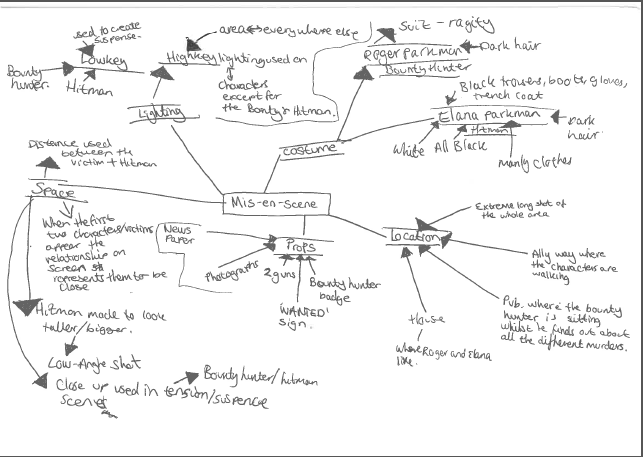 used to create
suspense.
Lowkey
Bounty
hunter.
Hitman
Highkey lighting used on
area everywhere else
Characters
except for
the Bounty & Hitman.
Lighting
Suit - ragity
Roger Parkman
Dark hair
Bounty Hunter
Black trousers, boots, gloves,
trench coat
Elana Parkman
Hitman
Dark
hair.
White
All Black
Manly clothes
Costume
Distance used
between the
victim + Hitman
Space
When the first
two characters/victims
appear the
relationship on
screen
represents them to be
close
Mis-en-scene
News
Paper
Props
Photographs
2 guns
Bounty hunter
badge
'WANTED'
sign.
Location
Extreme long shot of
the whole area
Ally way where
the characters are
walking
Pub. where the bounty
hunter is sitting
whilst he finds out about
all the different murders.
House
where Roger and Elana
live.
Hitman made to look
taller/bigger.
Low-Angle shot
Close up used in tension/suspence
scenes
Bounty hunter/hitman